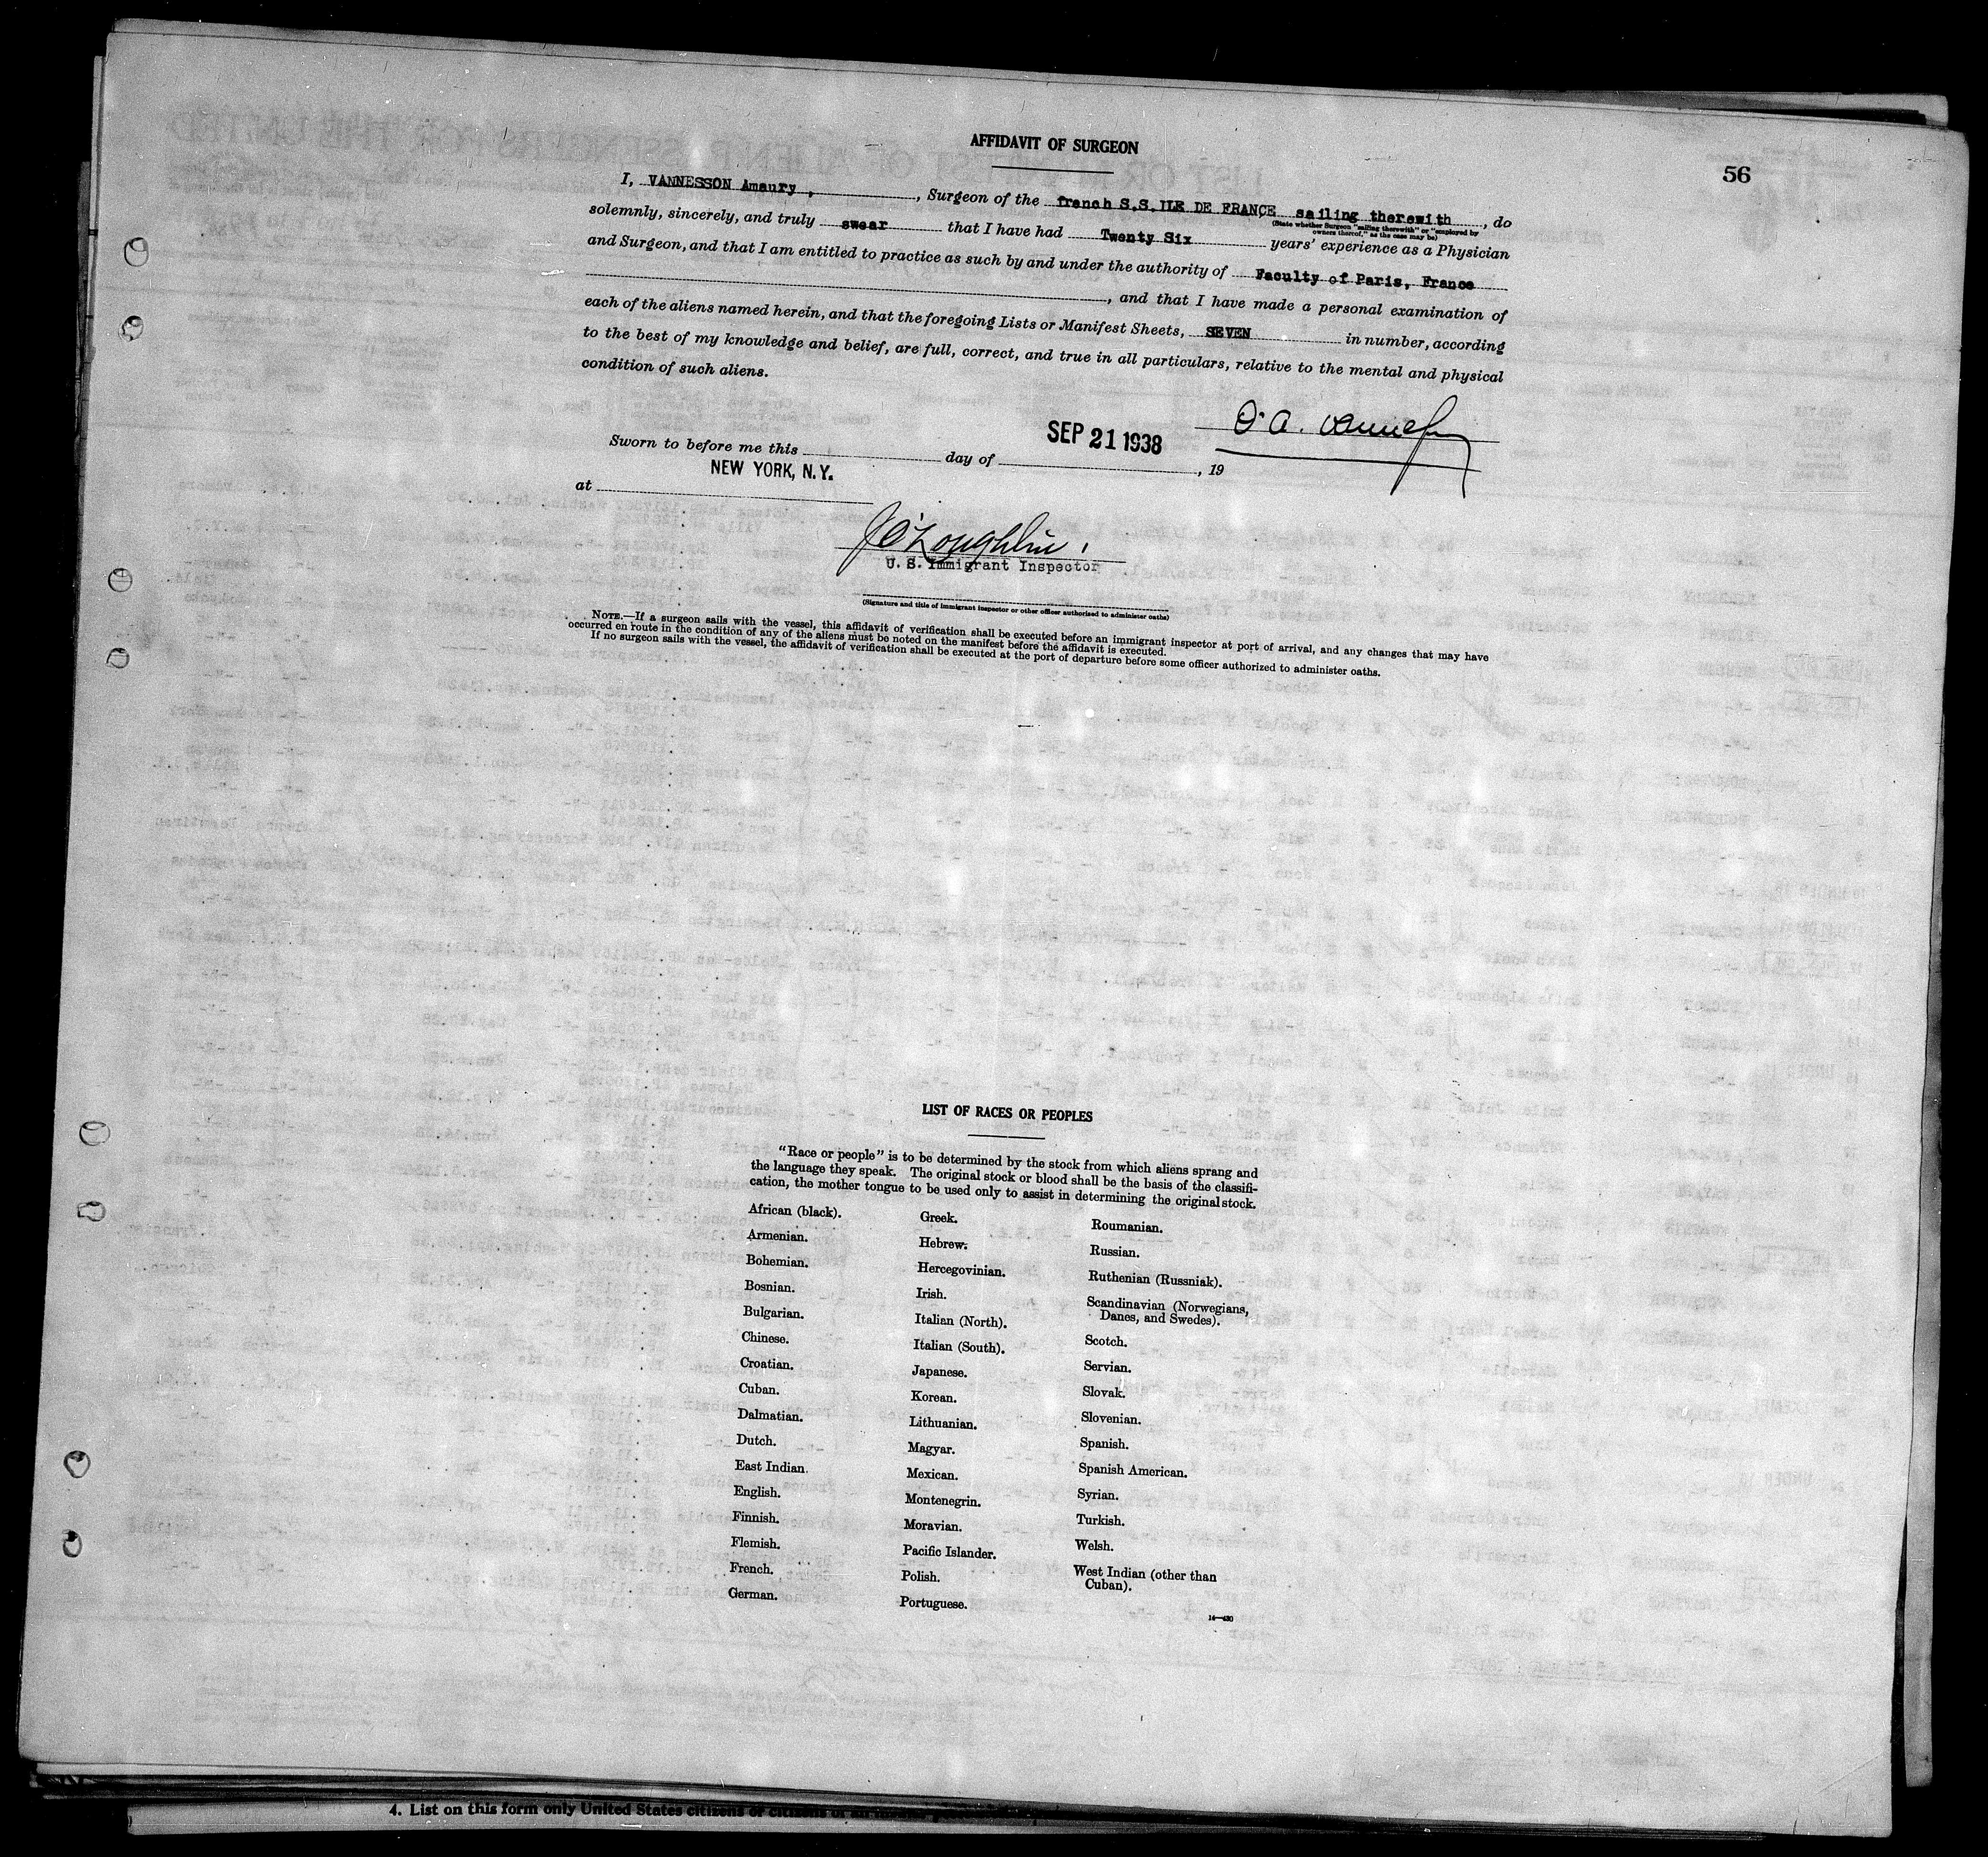 AFFIDAVIT OF SURGEON
56
I, VANNESSON Amaury , , Surgeon of the french S.S. ILE DE FRANCE sailing therewith , do
(State whether Surgeon "sailing therewith" or "employed by
owners thereof," as the case may be)
solemnly, sincerely, and truly swear that I have had Twenty Six years' experience as a Physician
and Surgeon, and that I am entitled to practice as such by and under the authority of Faculty of Paris, France
, and that I have made a personal examination of
each of the aliens named herein, and that the foregoing Lists or Manifest Sheets, SEVEN in number, according
to the best of my knowledge and belief, are full, correct, and true in all particulars, relative to the mental and physical
condition of such aliens.
Sworn to before me this day of SEP 21 1938 , 19
at NEW YORK, N.Y.
J O'Loughlin
U. S. Immigrant Inspector
(Signature and title of immigrant inspector or other officer authorized to administer oaths)
NOTE.—If a surgeon sails with the vessel, this affidavit of verification shall be executed before an immigrant inspector at port of arrival, and any changes that may have
occurred en route in the condition of any of the aliens must be noted on the manifest before the affidavit is executed.
If no surgeon sails with the vessel, the affidavit of verification shall be executed at the port of departure before some officer authorized to administer oaths.
LIST OF RACES OR PEOPLES
"Race or people" is to be determined by the stock from which aliens sprang and
the language they speak. The original stock or blood shall be the basis of the classifi-
cation, the mother tongue to be used only to assist in determining the original stock.
African (black).
Armenian.
Bohemian.
Bosnian.
Bulgarian.
Chinese.
Croatian.
Cuban.
Dalmatian.
Dutch.
East Indian.
English.
Finnish.
Flemish.
French.
German.
Greek.
Hebrew.
Hercegovinian.
Irish.
Italian (North).
Italian (South).
Japanese.
Korean.
Lithuanian.
Magyar.
Mexican.
Montenegrin.
Moravian.
Pacific Islander.
Polish.
Portuguese.
Roumanian.
Russian.
Ruthenian (Russniak).
Scandinavian (Norwegians,
Danes, and Swedes).
Scotch.
Servian.
Slovak.
Slovenian.
Spanish.
Spanish American.
Syrian.
Turkish.
Welsh.
West Indian (other than
Cuban).
14—430
4. List on this form only United States citizens or citizens of